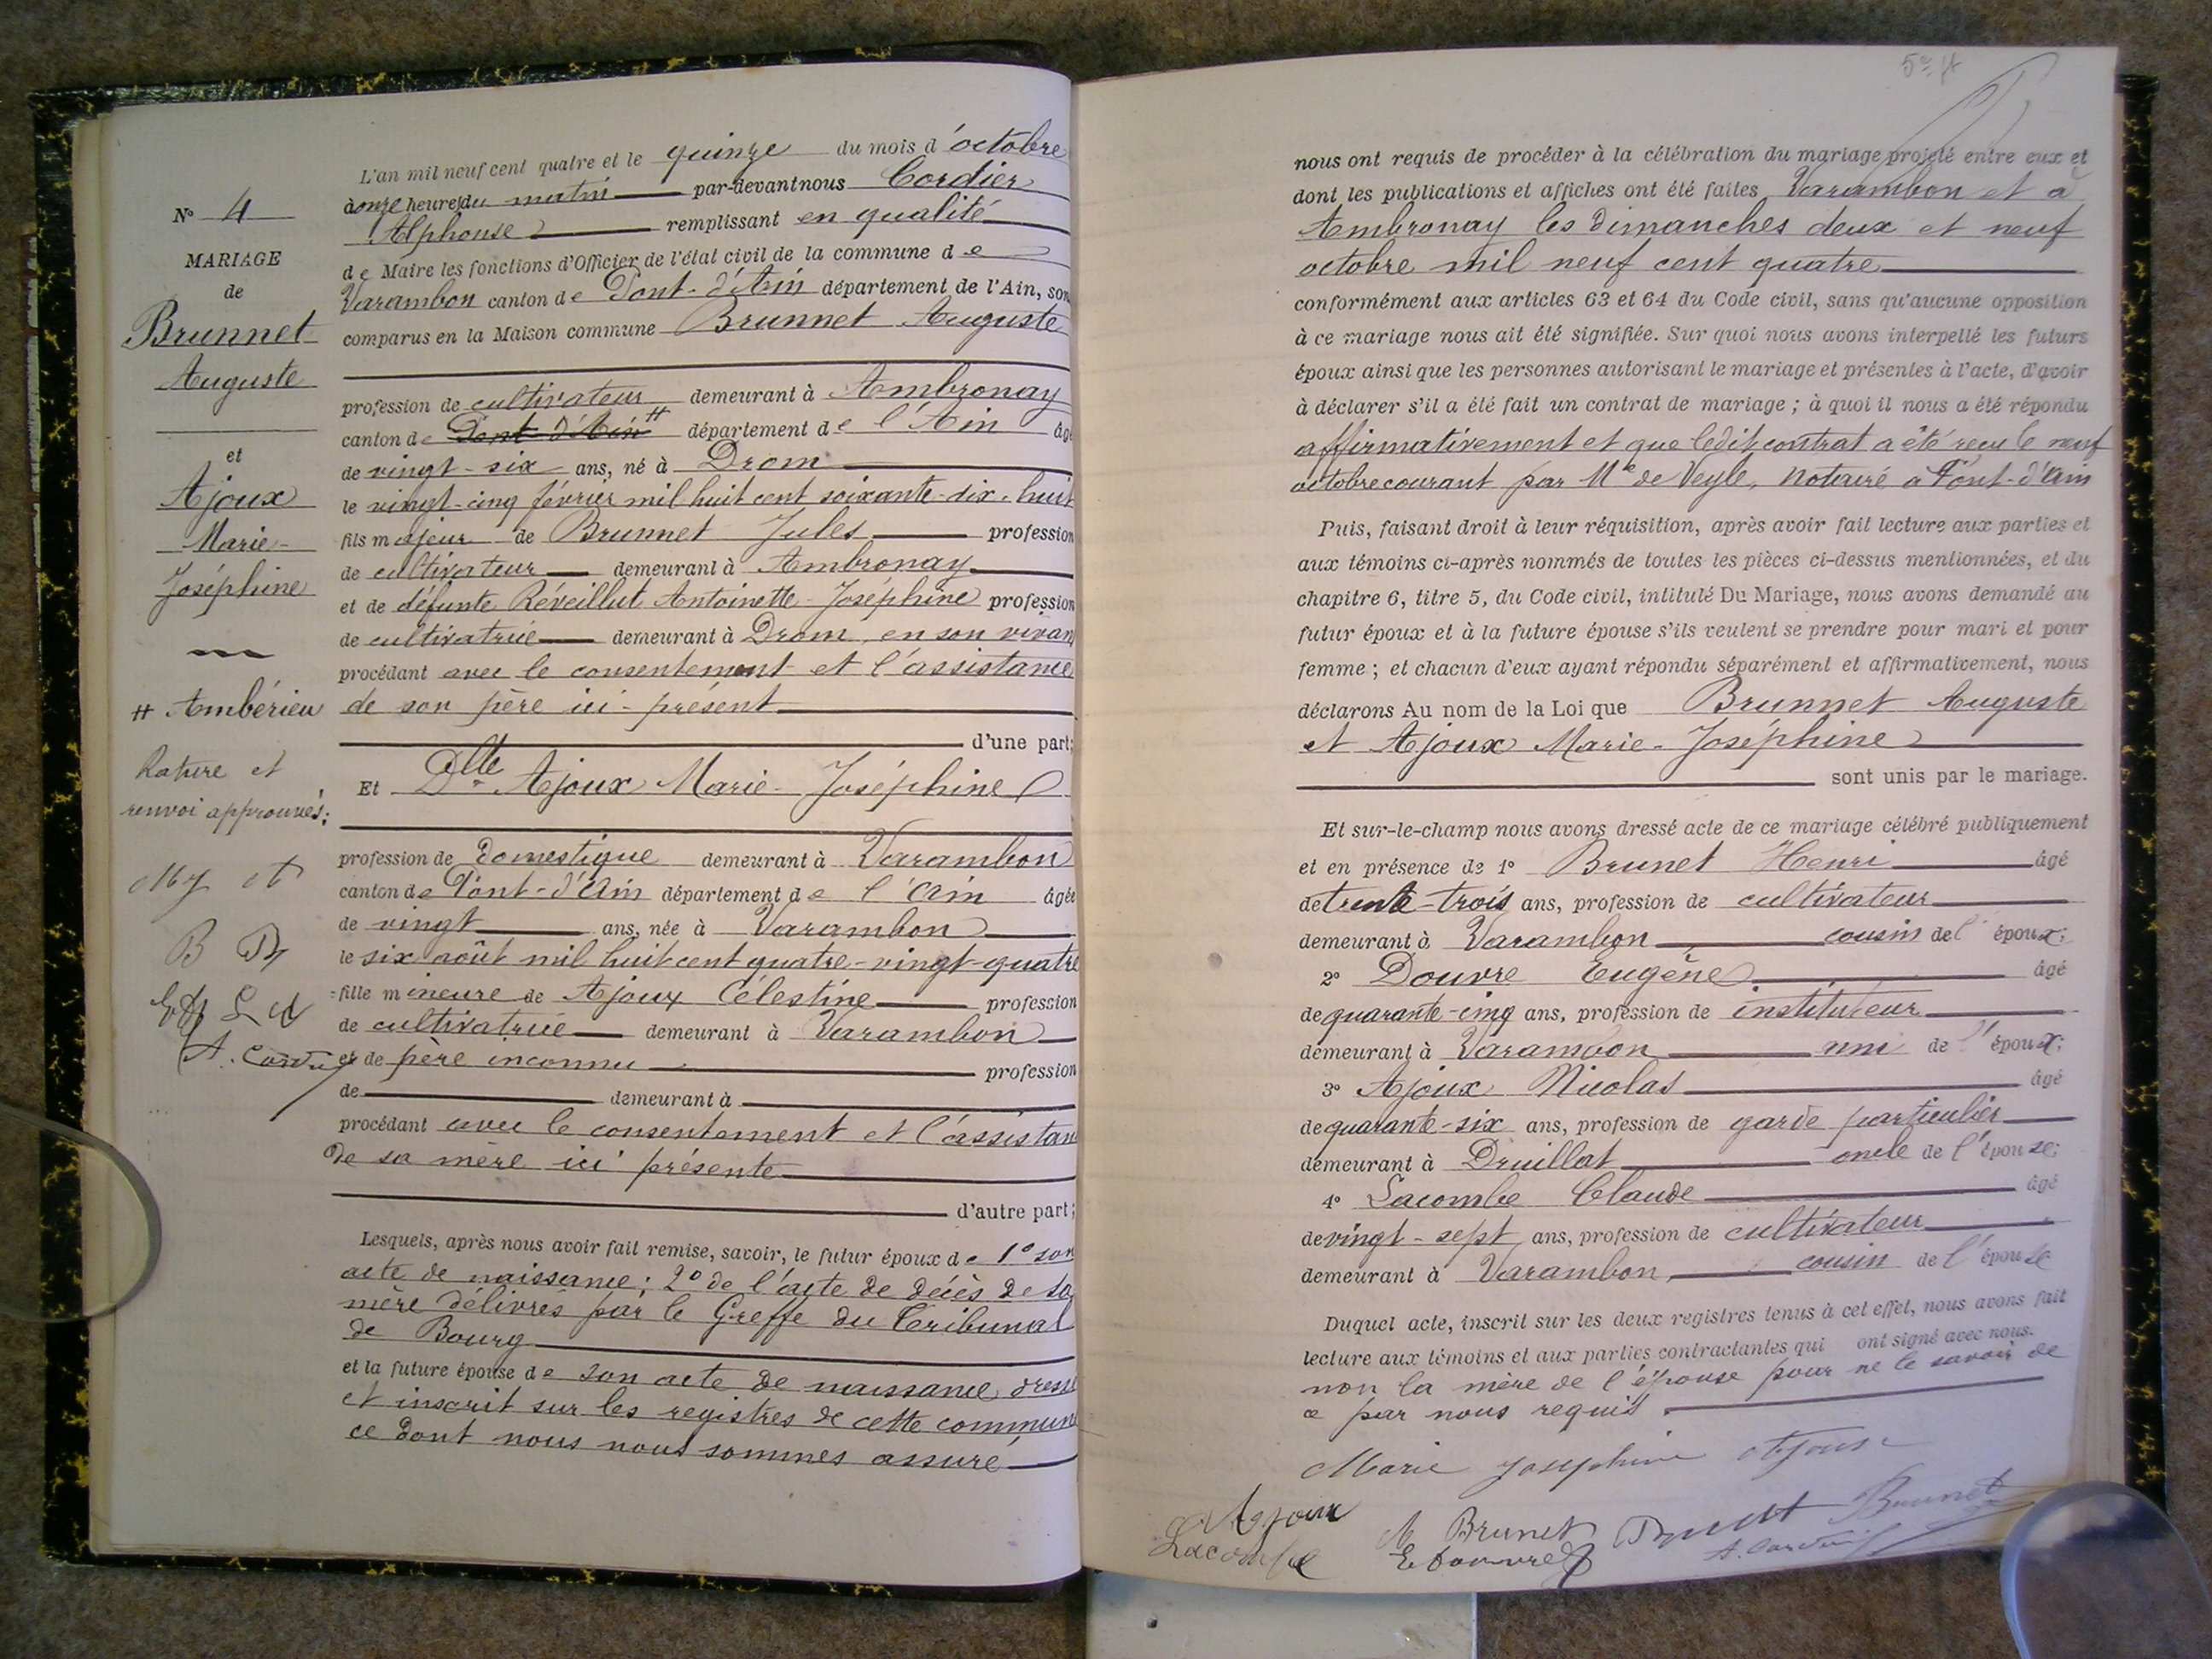 N° 4
MARIAGE
de
Brunnet
Auguste
et
Ajoux
Marie-
Joséphine
# Ambérieu
Rature et
renvoi approuvés:
L'an mil neuf cent quatre et le quinze du mois d'octobre
à onze heures du matin par-devant nous Cordier
Alphonse remplissant en qualité
de Maire les fonctions d'Officier de l'état civil de la commune de
Varambon canton de Pont-d'Ain département de l'Ain, son
comparus en la Maison commune Brunnet Auguste
profession de cultivateur demeurant à Ambronay
canton de Pont-d'Ain # département de l'Ain âgé
de vingt-six ans, né à Drom
le vingt-cinq février mil huit cent soixante-dix-huit
fils majeur de Brunnet Jules profession
de cultivateur demeurant à Ambronay
et de défunte Réveillut Antoinette-Joséphine profession
de cultivatrice demeurant à Drom, en son vivant
procédant avec le consentement et l'assistance
de son père ici-présent
d'une part;
Et Dlle Ajoux Marie-Joséphine
profession de domestique demeurant à Varambon
canton de Pont-d'Ain département de l'Ain âgée
de vingt ans, née à Varambon
le six août mil huit cent quatre-vingt-quatre
fille mineure de Ajoux Célestine profession
de cultivatrice demeurant à Varambon
et de père inconnu profession
de demeurant à
procédant avec le consentement et l'assistan
de sa mère ici présente
d'autre part;
Lesquels, après nous avoir fait remise, savoir, le futur époux de 1° son
acte de naissance; 2° de l'acte de décès de sa
mère délivrés par le Greffe du Tribunal
de Bourg
et la future épouse de son acte de naissance dressé
et inscrit sur les registres de cette commune
ce dont nous nous sommes assuré
nous ont requis de procéder à la célébration du mariage projeté entre eux et
dont les publications et affiches ont été faites Varambon et à
Ambronay les dimanches deux et neuf
octobre mil neuf cent quatre
conformément aux articles 63 et 64 du Code civil, sans qu'aucune opposition
à ce mariage nous ait été signifiée. Sur quoi nous avons interpellé les futurs
époux ainsi que les personnes autorisant le mariage et présentes à l'acte, d'avoir
à déclarer s'il a été fait un contrat de mariage; à quoi il nous a été répondu
affirmativement et que ledit contrat a été reçu le neuf
octobre courant par Me de Veyle, notaire à Pont-d'Ain
Puis, faisant droit à leur réquisition, après avoir fait lecture aux parties et
aux témoins ci-après nommés de toutes les pièces ci-dessus mentionnées, et du
chapitre 6, titre 5, du Code civil, intitulé Du Mariage, nous avons demandé au
futur époux et à la future épouse s'ils veulent se prendre pour mari et pour
femme; et chacun d'eux ayant répondu séparément et affirmativement, nous
déclarons Au nom de la Loi que Brunnet Auguste
et Ajoux Marie-Joséphine
sont unis par le mariage.
Et sur-le-champ nous avons dressé acte de ce mariage célébré publiquement
et en présence de 1° Brunet Henri âgé
de trente-trois ans, profession de cultivateur
demeurant à Varambon cousin de l'époux;
2° Douvre Eugène âgé
de quarante-cinq ans, profession de instituteur
demeurant à Varambon ami de l'époux;
3° Ajoux Nicolas âgé
de quarante-six ans, profession de garde particulier
demeurant à Druillat oncle de l'épouse;
4° Lacombe Claude âgé
de vingt-sept ans, profession de cultivateur
demeurant à Varambon, cousin de l'épouse
Duquel acte, inscrit sur les deux registres tenus à cet effet, nous avons fait
lecture aux témoins et aux parties contractantes qui ont signé avec nous.
non la mère de l'épouse pour ne le savoir de
ce par nous requis.
Marie Joséphine Ajoux
Ajoux
Lacombe
Brunet
E Douvre
Brunet
A. Cordier